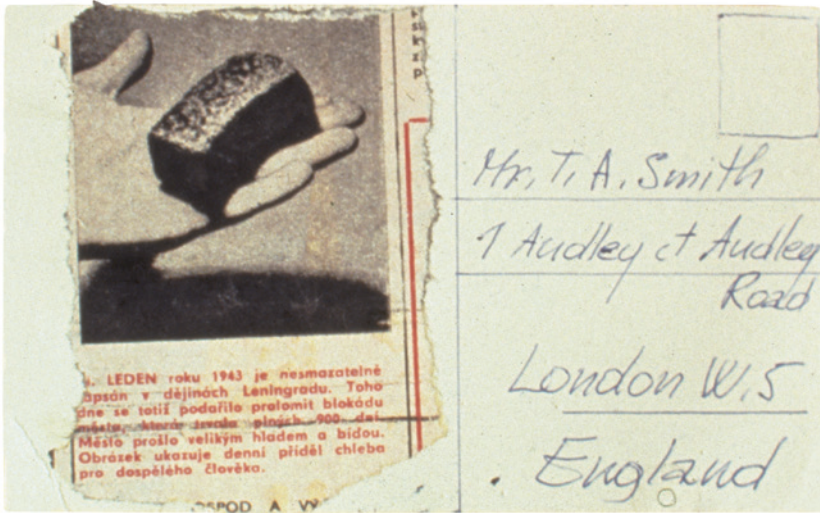 . LEDEN roku 1943 je nesmazatelně
apsán v dějinách Leningradu. Toho
dne se totiž podařilo prolomit blokádu
města, která trvala plných 900 dní.
Město prošlo velikým hladem a bídou.
Obrázek ukazuje denní příděl chleba
pro dospělého člověka.
OSPOD A VY
Mr. T. A. Smith
1 Audley ct Audley
Road
London W.5
England